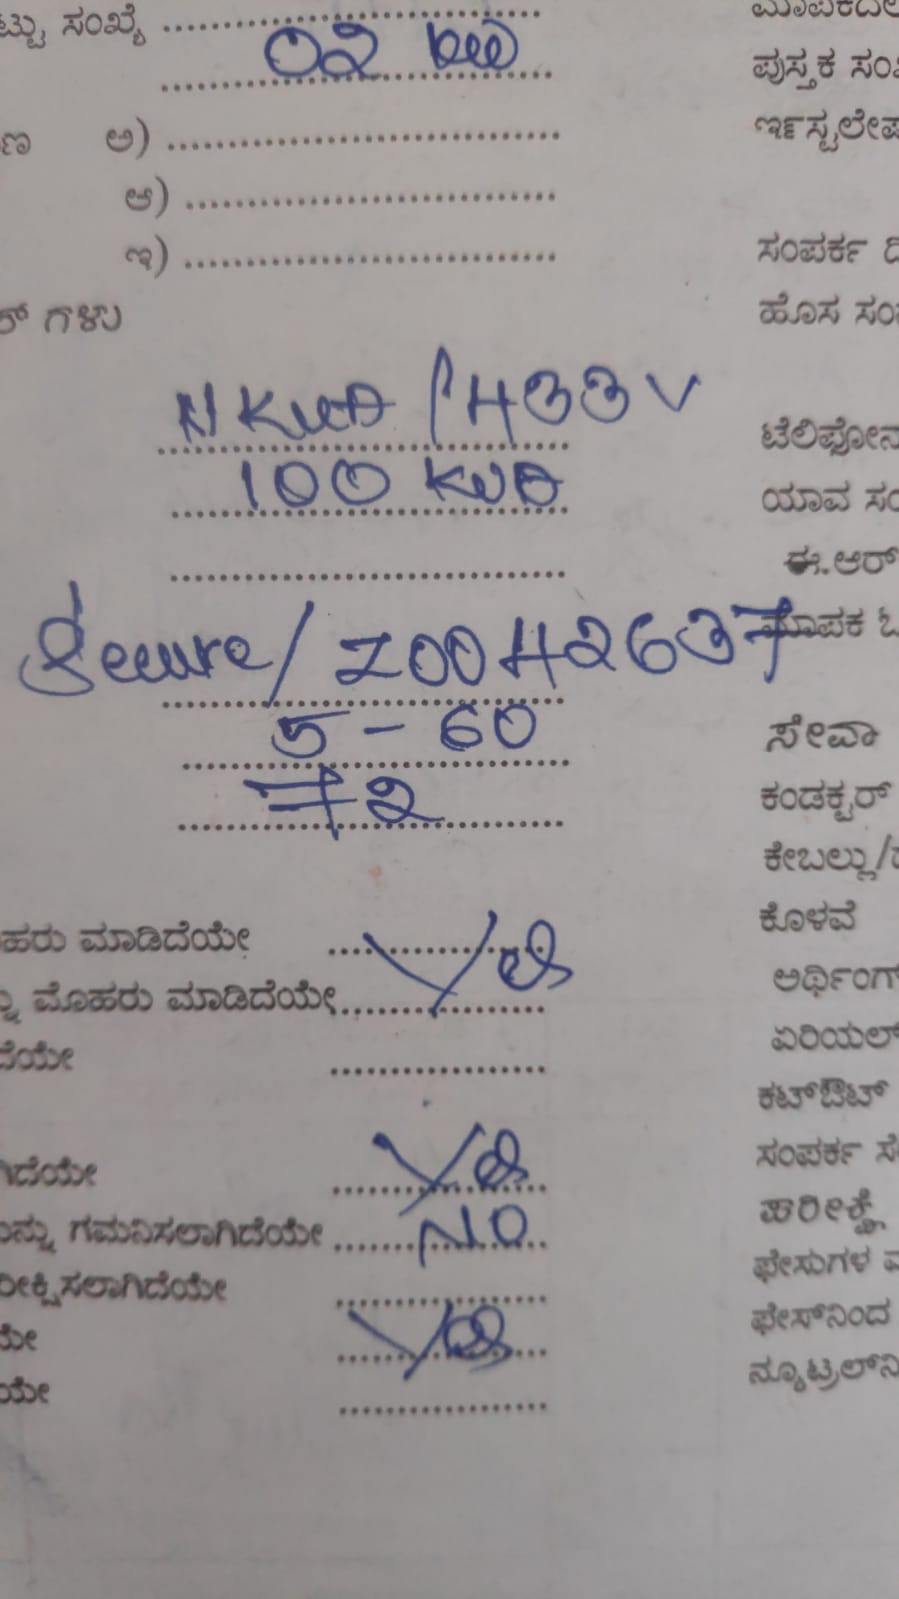 ಟ್ಟು ಸಂಖ್ಯೆ ಮಾಪಕದಲ
02 kw ಪುಸ್ತಕ ಸಂಖ
ಣ ಅ) ಇನ್‌ಸ್ಟಲೇಷ
ಆ)
ಇ) ಸಂಪರ್ಕ ದಿ
ರ್ ಗಳು ಹೊಸ ಸಂಪ
KVA / 433 V
ಟೆಲಿಫೋನ
100 KVA ಯಾವ ಸಂ
ಈ.ಆರ್
ಮಾಪಕ ಓ
Secure / Z0042637
5 - 60 ಸೇವಾ
72 ಕಂಡಕ್ಟರ್
ಕೇಬಲ್ಲು/ವ
ಹರು ಮಾಡಿದೆಯೇ Yes ಕೊಳವೆ
ನ್ನು ಮೊಹರು ಮಾಡಿದೆಯೇ ಅರ್ಥಿಂಗ್
ದೆಯೇ ಏರಿಯಲ್
ಕಟ್‌ಔಟ್
ಗಿದೆಯೇ Yes ಸಂಪರ್ಕ ಸೇ
ವನ್ನು ಗಮನಿಸಲಾಗಿದೆಯೇ NO ಪರೀಕ್ಷೆ
ರೀಕ್ಷಿಸಲಾಗಿದೆಯೇ ಫೇಸುಗಳ ಮ
ಯೇ Yes ಫೇಸ್‌ನಿಂದ
ಯೇ ನ್ಯೂಟ್ರಲ್‌ನಿ